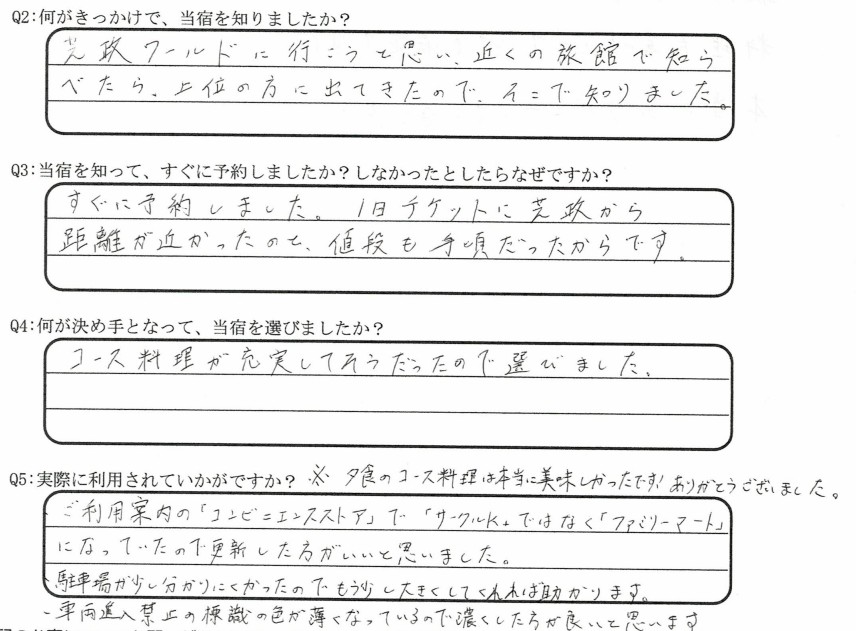 Q2:何がきっかけで、当宿を知りましたか?
芝政ワールドに行こうと思い、近くの旅館で知ら
べたら、上位の方に出てきたので、そこで知りました。
Q3:当宿を知って、すぐに予約しましたか?しなかったとしたらなぜですか?
すぐに予約しました。1日チケットに芝政から
距離が近かったのと、値段も手頃だったからです。
Q4:何が決め手となって、当宿を選びましたか?
コース料理が充実してそうだったので選びました。
Q5:実際に利用されていかがですか? ※ 夕食のコース料理は本当に美味しかったです!ありがとうございました。
・ご利用案内の「コンビニエンスストア」で「サークルK」ではなく「ファミリーマート」
になっていたので更新した方がいいと思いました。
・駐車場が少し分かりにくかったのでもう少し大きくしてくれれば助かります。
・車両進入禁止の標識の色が薄くなっているので濃くした方が良いと思います